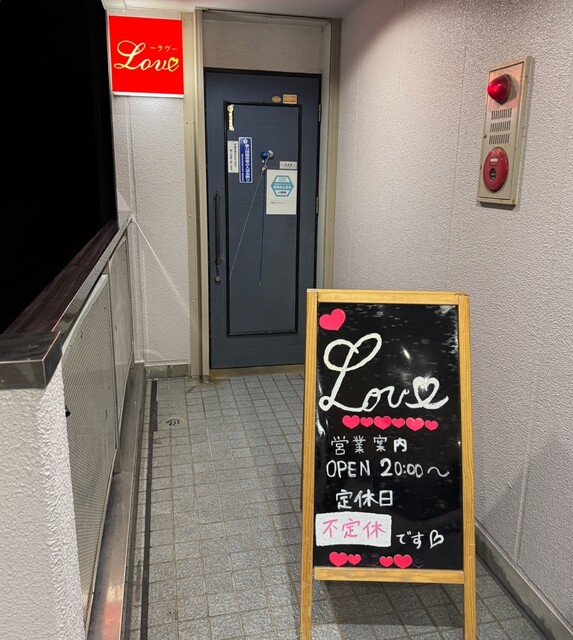 ーラヴー
Love
Love
営業案内
OPEN 20:00～
定休日
不定休です